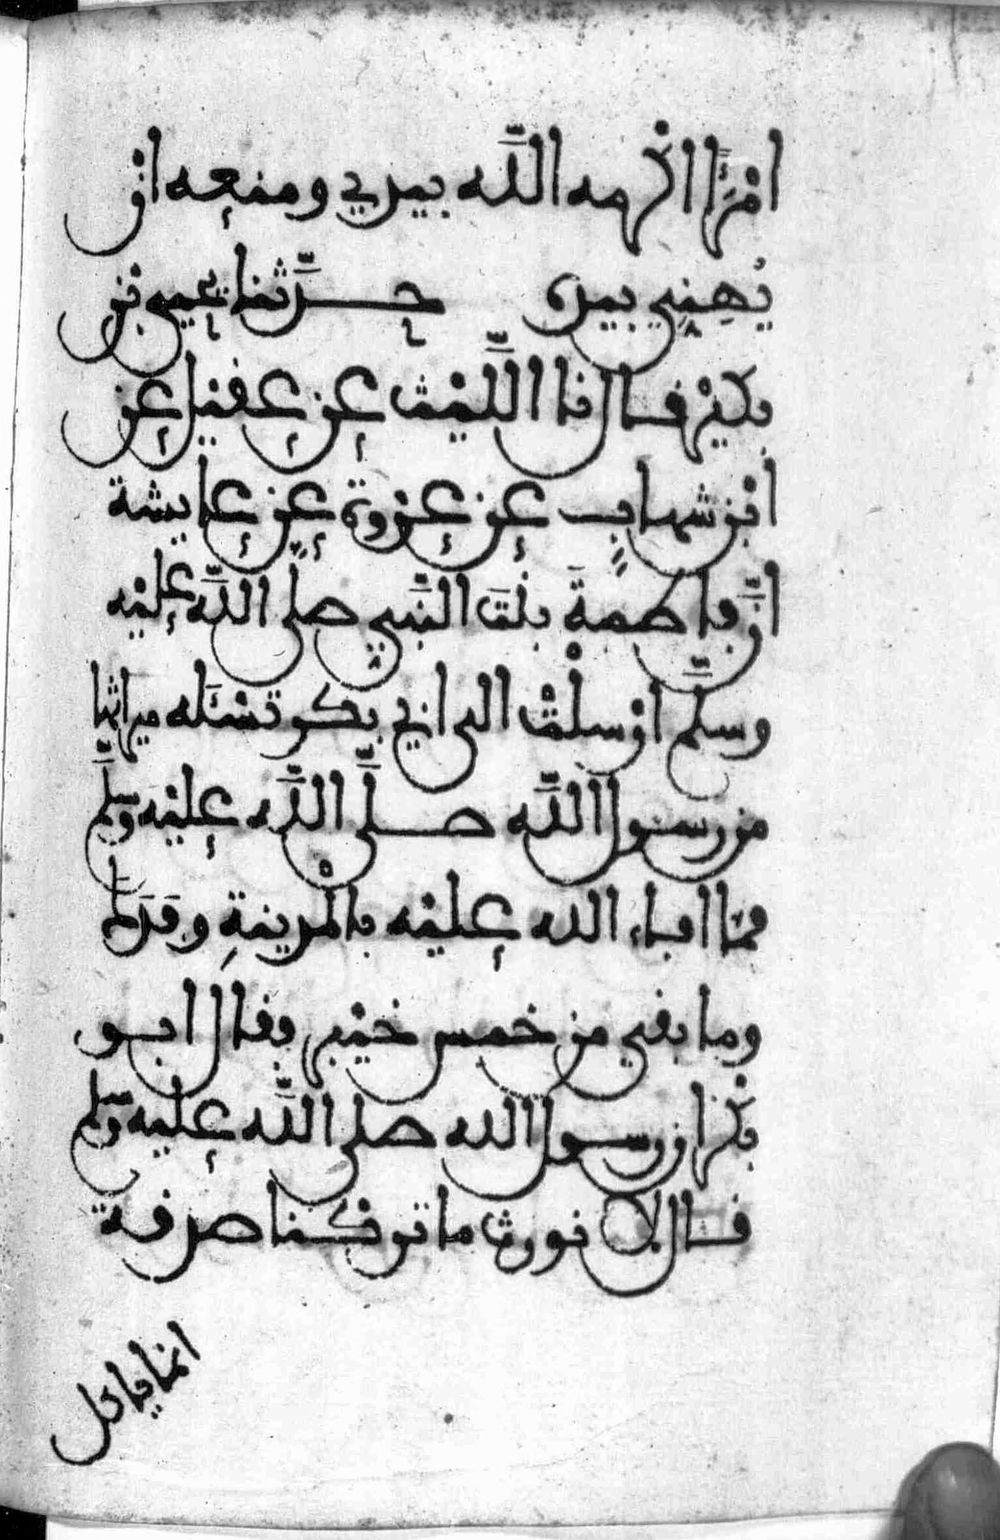 امْرَأً اكْرمه اللَّه بيدي ومنعه انْ
يُهِنِي بيده حدَّثنا يحيى بْن
بكيْر فال نا اللَّيْث عن عفيْل عن
ابْن شهابٍ عن عرْوة عن عايشة
انَّ فاطمةَ بنْتَ النَّبي صلى اللَّه عليْه
وسلَّم ارْسلتْ الى ابي بكر تسْئَله ميراثها
من رسول اللَّه صلَّى اللَّه عليْه وسلَّم
ممَّا افاء الله عليْه بالْمدينةِ وفَدَكَ
وما بفي من خمس خيْبر ففال ابو
بكْر ان رسول الله صلى اللَّه عليه وسلم
فال لا نورث ما تركنا صدفة
انما ياكل